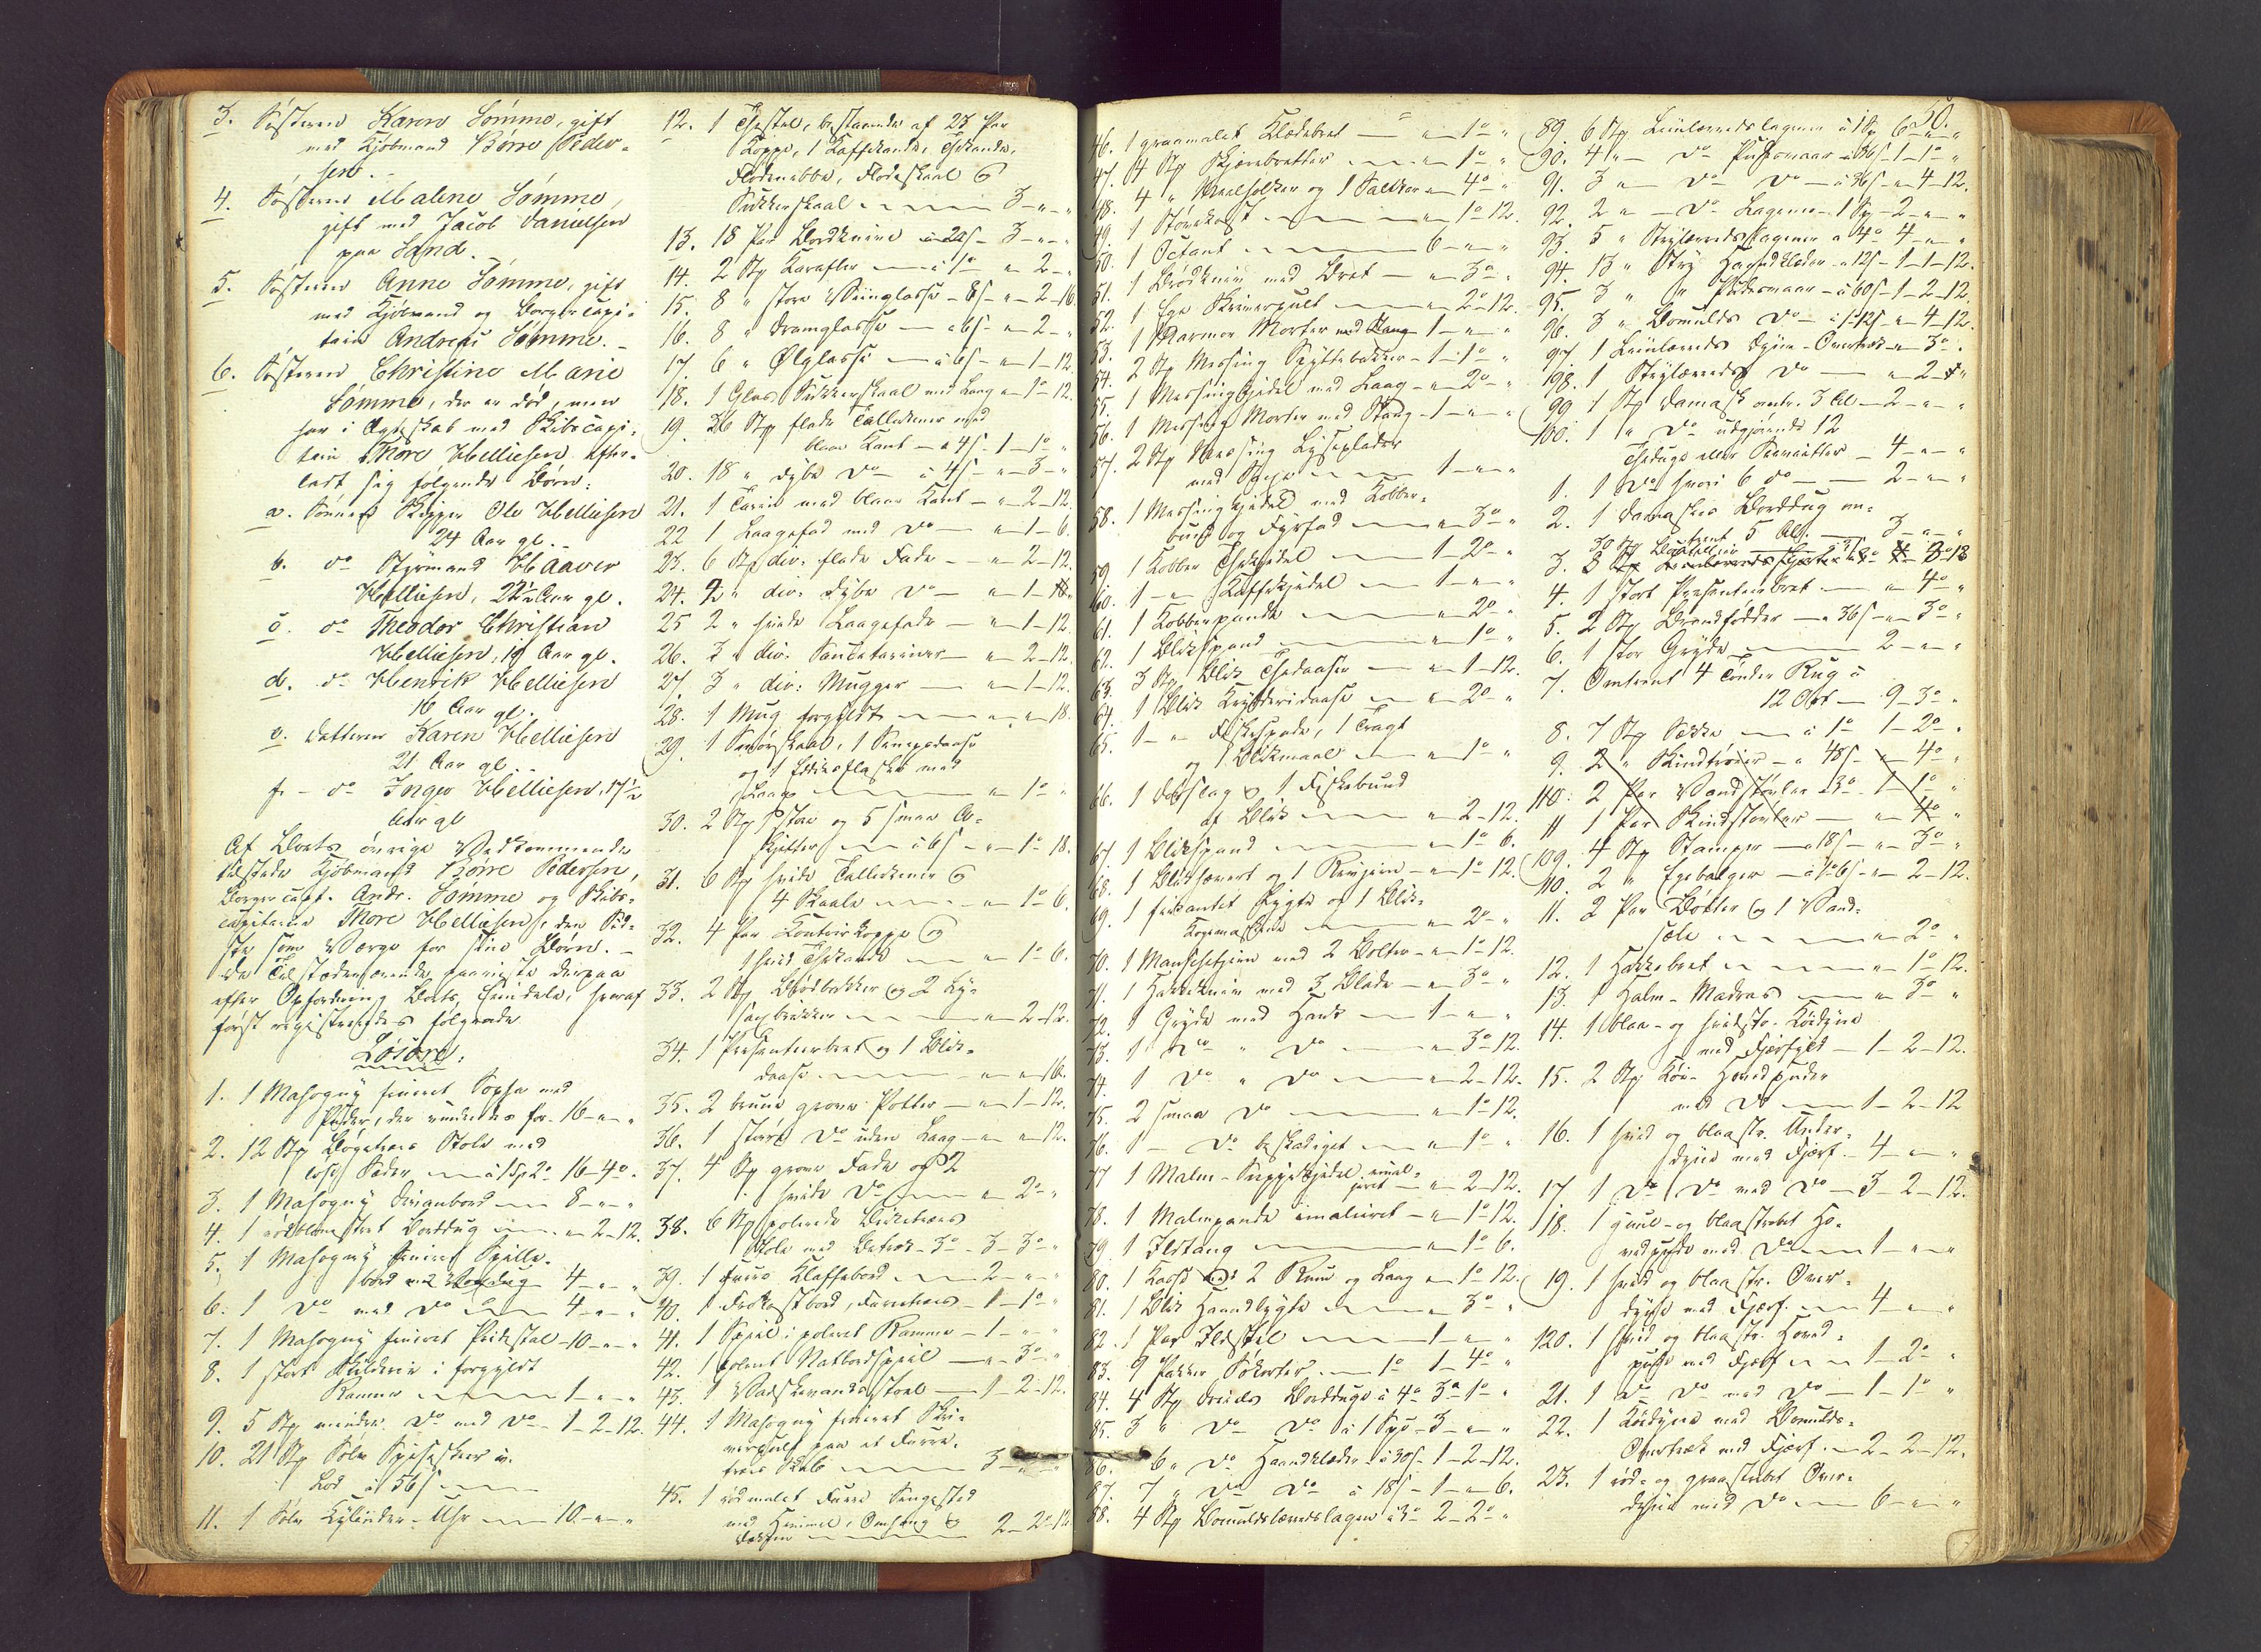 3. Søsteren Karen Sømme, gift
med Kjøbmand Børre Peder-
sen. -
4. Søsteren Malene Sømme,
gift med Jacob Danielsen
paa Sand. -
5. Søsteren Anne Sømme, gift
med Kjøbmand og Borgercapi-
tain Andreas Sømme. -
6. Søsteren Christine Marie
Sømme, der er død, men
har i Ægteskab med Skibscapi-
tain Thore Helliesen efter-
ladt sig følgende Børn:
a. Sønnen Skipper Ole Helliesen
24 Aar gl. -
b. do Styrmand Haaver
Helliesen, 22½ Aar gl.
c. do Theodor Christian
Helliesen, 19 Aar gl.
d. do Henrik Helliesen
16 Aar gl.
e. Datteren Karen Helliesen
21 Aar gl. -
f. - do Inger Helliesen, 17½
Aar gl
Af Boets øvrige Vedkommende
tilstede Kjøbmand Børre Pedersen,
Borgercapt. Andr. Sømme og Skibs-
capitain Thore Helliesen, den Sid-
ste som Værge for sine Børn. -
De Tilstedeværende paaviste derpaa
efter Opfordring Boets Eiendele, hvoraf
først registreredes følgende
Løsøre:
1. 1 Mahogny fineret Sopha med
Puder, der vurderedes for 16 - " - "
2. 12 Stk Bøgetræs Stole med
løse Sæder à 1 Sp 2o 16-4o "
3. 1 Mahogny Divanbord 8 - " - "
4. 1 rødblomstret Borddug " 2-12.
5. 1 Mahogny fineret Spille-
bord med Voxdug 4 - " - "
6. 1 do med do 4 - " - "
7. 1 Mahogny fineret Pidestal - 10 - " - "
8. 1 stort Skilderie i forgyldt
Ramme 1 - " - "
9. 5 Stk mindre do med do - 1-2-12.
10. 21 Stk Sølv Spiseskeer v.
Lod à 56 s
11. 1 Sølv Cylinder-Uhr 10 - " - "
12. 1 Thestel, bestaaende af 23 Par
Koppe, 1 Kaffekande, Thekande,
Flødenebbe, Flødeskaal &
Sukkerskaal 3 - " - "
13. 18 Par Bordknive à 20 s - 3 - " - "
14. 2 Stk Karafler à 1o " 2 - "
15. 8 " store Viinglasse - 8 s - " - 2-16
16. 8 " Dramglasse à 6 s - " 2 - "
17. 6 " Ølglasse à 6 s - " 1-12.
18. 1 Glas Sukkerskaal med Laag - " 1o-12.
19. 36 Stk flade Tallerkener med
blaa Kant - à 4 s - 1-1o "
20. 18 " dybe do à 4 s - " 3 - "
21. 1 Terrin med blaa Kant - " 2-12
22 1 Laagefad med do " 1-6.
23. 6 Stk div. flade Fade " 2-12.
24. 2 " div. dybe do " 1-18.
25 2 " hvide Laagefade " 1-12.
26. 3 " div. Sauceterriner " 2-12.
27. 3 " div: Mugger " 1-12.
28. 1 Mug forgyldt " " 18.
29. 1 Smørskaal, 1 Sennepsdaase
og 1 Eddikeflaske med
Laag " 1o "
30. 2 Stk store og 5 smaa As-
kjetter à 6 s - " - 1o 18.
31. 6 Stk hvide Tallerkener &
4 Skaale " 1o 6.
32. 4 Par Contoirkoppe &
1 hvid Thekande " 1o 6.
33. 2 Stk Brødbakker og 2 Ly-
saxbrikker " 2-12.
34. 1 Presenteerbret og 1 Blik-
daase " " 16.
35. 2 brune grove Potter " 1-12.
36. 1 større do uden Laag - " " 12.
37. 4 Stk grove Fade og 2
hvide do " 2o "
38. 6 Stk polerede Birketræs
Stole med Betræk - 3o - 3-3o "
39. 1 Furre Klaffebord 2 - " "
40. 1 Frokostbord, Furretræs - 1-1o "
41. 1 Speil i poleret Ramme - 1 - " "
42. 1 poleret Natbordspeil " 3o "
43. 1 Vadskevandsstoel 1-2-12.
44. 1 Mahogny fineret Skri-
verpult paa et Furre-
træs Skab 3 - " - "
45. 1 rødmalet Furre Sengested
med Himmel, Omhæng &
2-2o-12
50.
46. 1 graamalet Klædebret " 1o "
47. 4 Stk Skjærebretter " 1o "
48. 4 " Meelholker og 1 Saltkar " 4o "
49. 1 Støvekost " 1o 12.
50. 1 Octant 6 - " "
51. 1 Brødkniv med Bret " 3o "
52. 1 Ege Skriverpult " 2o-12.
53. 1 Marmor Morter med Stang 1 - " "
54. 2 Stk Messing Spyttebakker - 1-1o "
55. 1 Messingkjedel med Laag - " 2o "
56. 1 Messing Morter med Stang - 1 - " "
57. 2 Stk Messing Lyseplader
1 - " "
58. 1 Messingkjedel med Kobber-
bund og Fyrfad " 3o "
59. 1 Kobber Thekjedel 1-2o "
60. 1 - " - Kaffekjedel 1 - " "
61. 1 Kobberpande " 2o "
62. 1 Blikspand " 1o "
63. 3 Stk Blik Thedaaser " 1-12.
64. 1 Blik Krydderidaase " 2o "
65. 1 - " - Fiskespade, 1 Tragt
og 1 Blikmaal " 1o "
66. 1 Dørslag & 1 Fiskebund
af Blik " 2-12.
67. 1 Blikspand " 1o 6.
68. 1 og 1 Rivjern " 1o 12.
69. 1 firkantet Lygte og 1 Blik-
Kogemaskine " 2o "
70. 1 Manchetjern med 2 Bolter " 1o 12.
71. 1 Hakkekniv med 3 Blade " 3o "
72. 1 Gryde med Hank 1 - " "
73. 1 do " do " 3o 12.
74. 1 do " do " 2-12.
75. 2 smaa do " 1o 12.
76. 1 - do beskadiget " 1o "
77 1 Malm-Suppekjedel emal-
jeret " 2-12.
78. 1 Malmpande emaleret " 1o 12.
79. 1 Ildtang " 1o 6.
80. 1 Kasse med 2 Rum og Laag " 1o 12.
81. 1 Blik Haandlygte " 3o "
82. 1 Par Ildstel 1 - " "
83. 9 Pakker Søkorter 1o 1-4o "
84. 4 Stk Dreiels Bordduge à 4o 3o 1o "
85. 3 " do do à 1 Spd - 3 - " "
86. 6 " do Haandklæder à 30 s - 1-2-12.
87. 7 " do do à 18 s - 1 - " 6.
88. 4 Stk Bomuldslærredslagen à 3o 2-2o "
89. 6 Stk Linlærredslagener à 1 Sp 6 - " "
90. 4 " do Pudevaar à 36 s - 1-1o "
91. 3 " do do à 36 s - " 4-12.
92. 2 " do Lagener - 1 Sp - 2 - " "
93. 5 " Strylærredslagener à 4o 4 - " "
94. 13 " Stry Haandklæder à 12 s - 1-1-12.
95. 3 " " Pudevaar à 60 s - 1-2-12.
96. 3 " Bomulds do à 1-12 s - " 4-12.
97. 1 Linlærreds Dyne-Overtræk " 3o "
98. 1 Strylærreds do " 2 "
99 1 Stk Damask omtr. 3 Al - 2 - " "
100. 1 " do udgjørende 12
Theduge eller Servietter - 4 - " "
1. 1 do hvori 6 do 2 - " "
2. 1 Damaskes Borddug om-
trent 5 Al. 3 - " "
3. 30 Stk Bouteiller à 3 s 3o 18
4. 1 stort Presenteerbret " 4o "
5. 2 Stk Brændfødder à 36 s - " 3o "
6. 1 stor Gryde 2 - " "
7. Omtrent 4 Tønder Rug à
12 Ort 9-3o "
8. 7 Stk Sække à 1o 1-2o "
9. 2 " Skindtrøier à 48 s " 4o "
110. 2 Par Vandstøvler à 3o 1-1o "
11 1 Par Skindstøvler " 4o "
109. 4 Stk Stamper à 18 s - " 3o "
110. 2 " Egebalger à 1o 6 s - " 2-12.
11. 2 Par Bøtter & 1 Vand-
sele " 2o "
12. 1 Hakkebret " 1o 12.
13. 1 Halm-Madras " 3o "
14. 1 blaa- og hvidstr. Køidyne
med Fjærfyld 1-2-12.
15. 2 Stk Køi-Hovedpuder
med do 1-2-12
16. 1 hvid og blaastr. Under-
dyne med Fjærf. 4 - " "
17. 1 do do med do 3-2-12.
18. 1 guul- og blaastribet Ho-
vedpude med do 1 - " "
19. 1 hvid og blaastr. Over-
dyne med Fjærf. 4 - " "
120. 1 hvid og blaastr. Hoved-
pude med Fjærf 1-2o "
21. 1 do do med do 1-1o "
22. 1 Køidyne med Bomulds-
Overtræk med Fjærf. 2-2-12.
23. 1 rød- og graastribet Over-
dyne med do 6 - " "